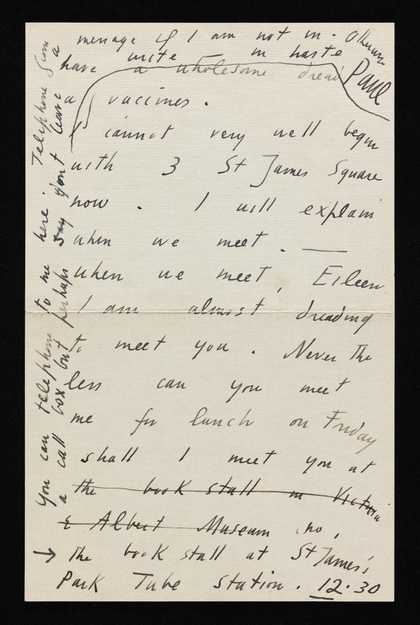 message if I am not in. Otherwise
write – in haste
Paul
have a wholesome dread
a vaccines.
I cannot very well begin
with 3 St James Square
now. I will explain
when we meet. —
when we meet, Eileen
I am almost dreading
to meet you. Never the
less can you meet
me for lunch on Friday
shall I meet you at
the book stall in Victoria
& Albert Museum no,
→ The book stall at St James's
Park Tube Station. 12.30
You can telephone to me here. Telephone from
a call box but perhaps say don't leave
a